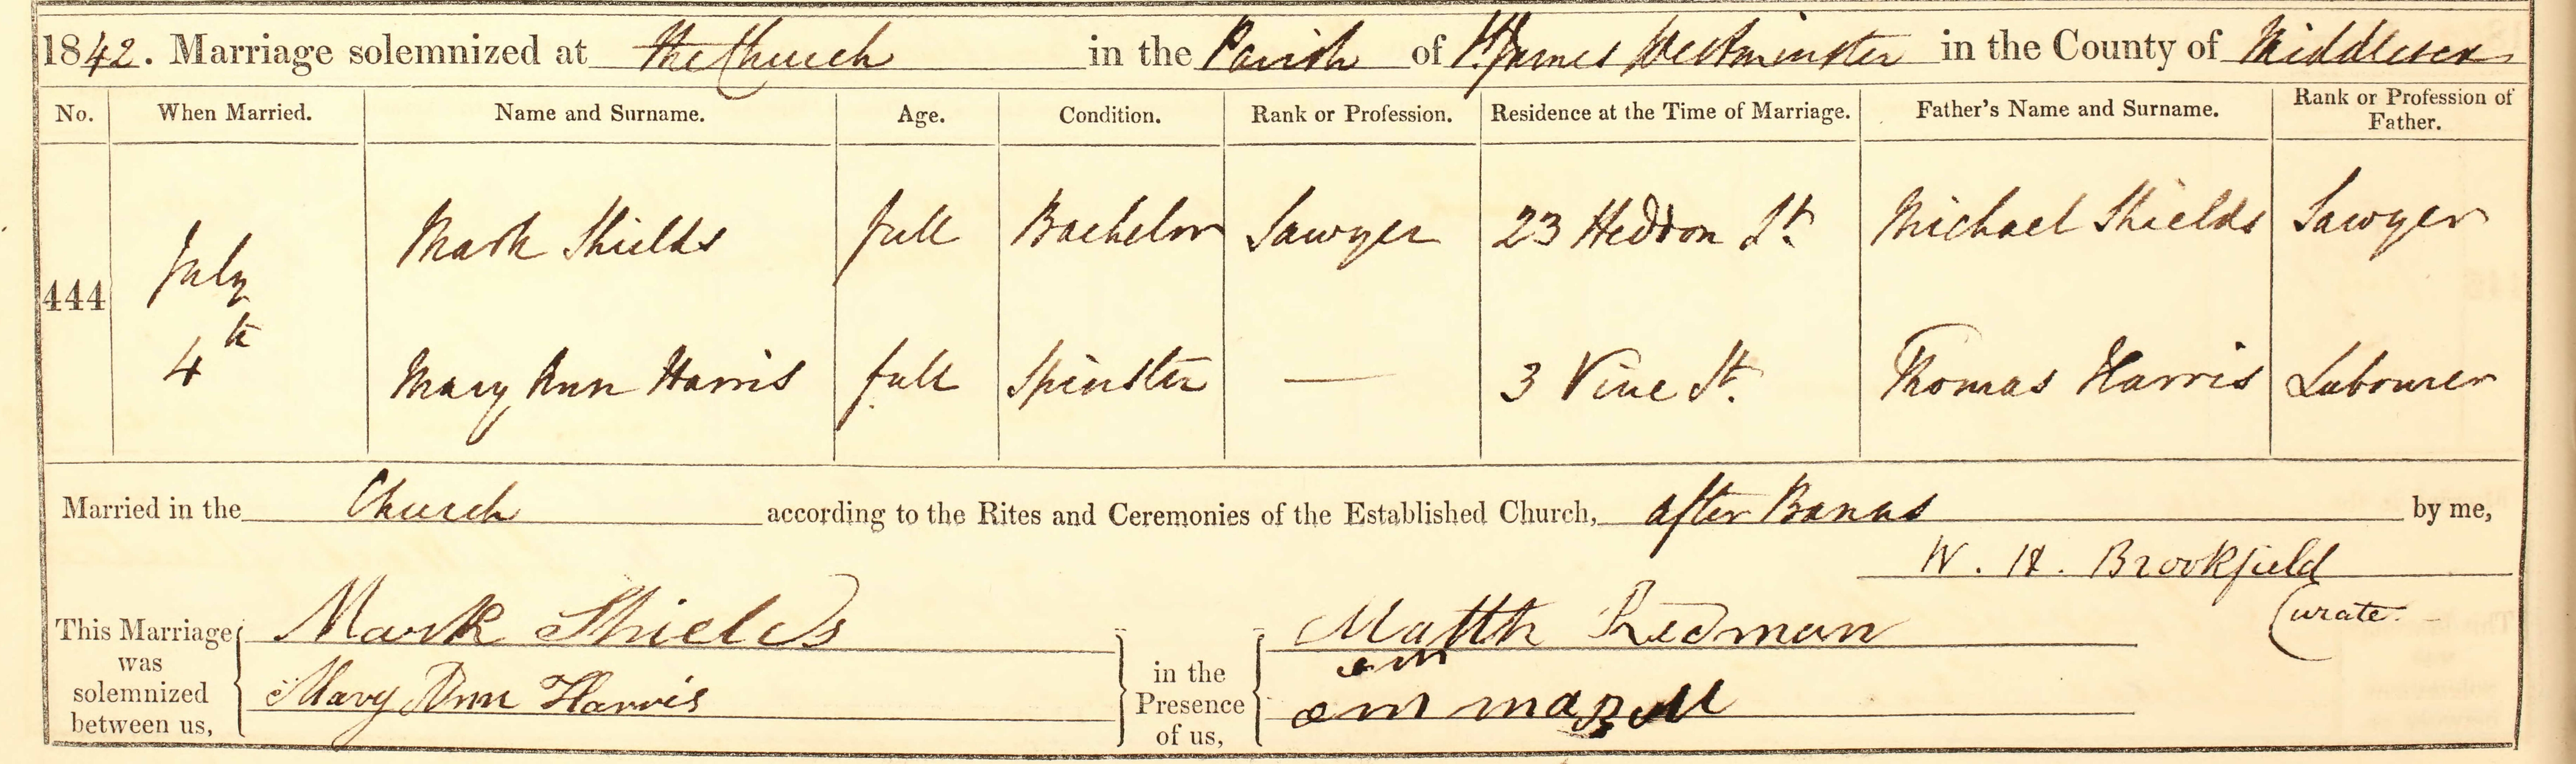 1842. Marriage solemnized at the Church in the Parish of St. James Westminster in the County of Middlesex
No. When Married. Name and Surname. Age. Condition. Rank or Profession. Residence at the Time of Marriage. Father's Name and Surname. Rank or Profession of Father.
444 July 4th
Mark Shields full Bachelor Sawyer 23 Heddon St. Michael Shields Sawyer
Mary Ann Harris full Spinster — 3 Vine St. Thomas Harris Labourer
Married in the Church according to the Rites and Ceremonies of the Established Church, after Banns by me,
W. H. Brookfield
Curate.
This Marriage was solemnized between us, Mark Shields
Mary Ann Harris
in the Presence of us, Matth Redman